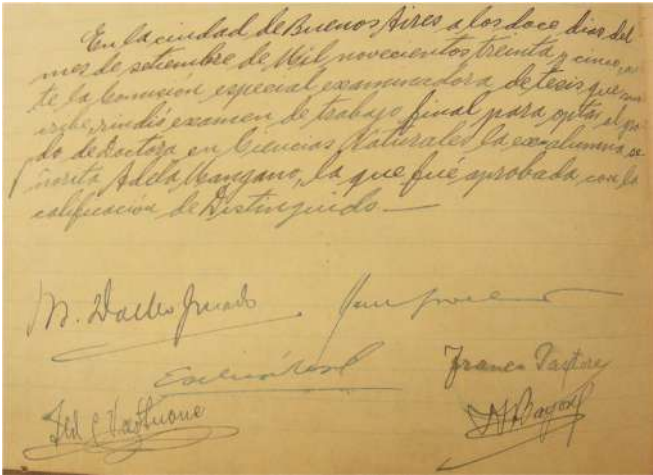 En la ciudad de Buenos Aires a los doce dias del
mes de setiembre de Mil novecientos treinta y cinco, an
te la Comisión especial examinadora de tesis que sus
cribe, rindió examen de trabajo final para optar al gra
do de Doctora en Ciencias Naturales la ex-alumna se
ñorita Adela Mangano, la que fué aprobada con la
calificación de Distinguido —
M. Doello Jurado
Franco Pastore